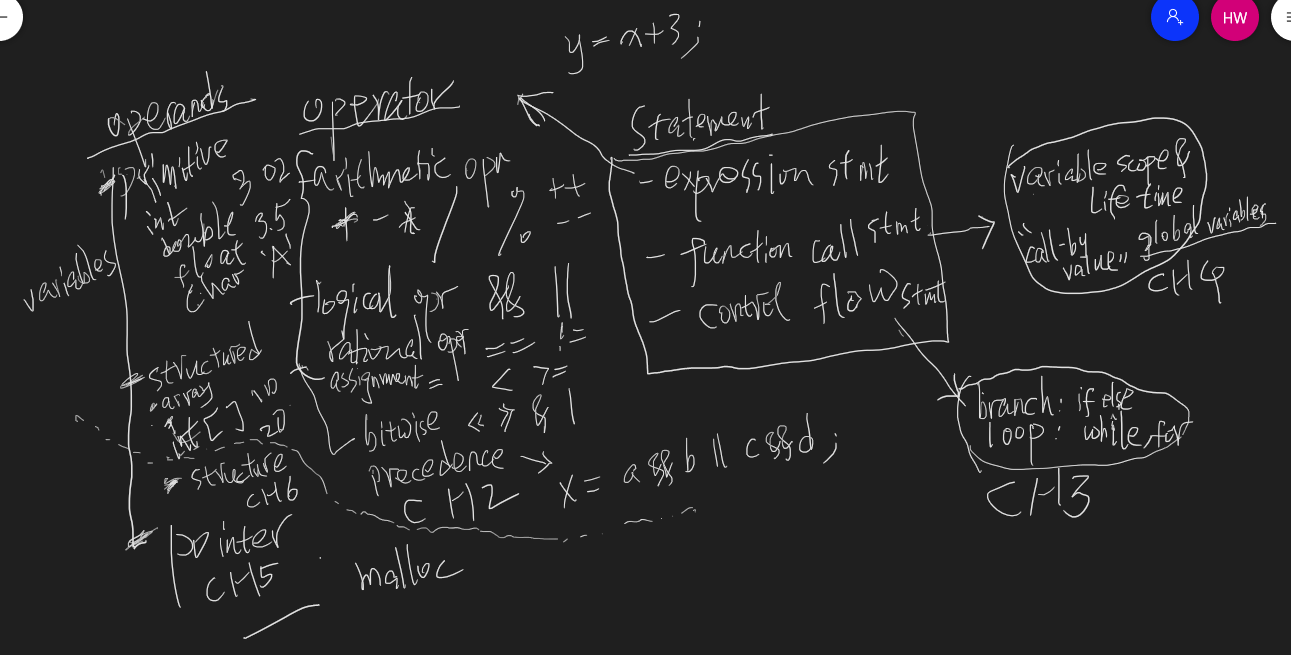 HW
y = x+3;
operands
primitive 3 02
int
double 3.5
float 'A'
char
variables
structured
array
int [ ] 1D
2D
structure
CH6
pointer
CH5
malloc
operator
arithmetic opr
+ - * / % ++
--
logical opr && ||
rational oper == !=
assignment = < >=
bitwise << >> & |
precedence → x = a && b || c && d ;
CH2
Statement
- expression stmt
- function call stmt
- control flow stmt
variable scope &
Life time
"call-by
value" global variables
CH4
branch: if else
loop: while, for
CH3